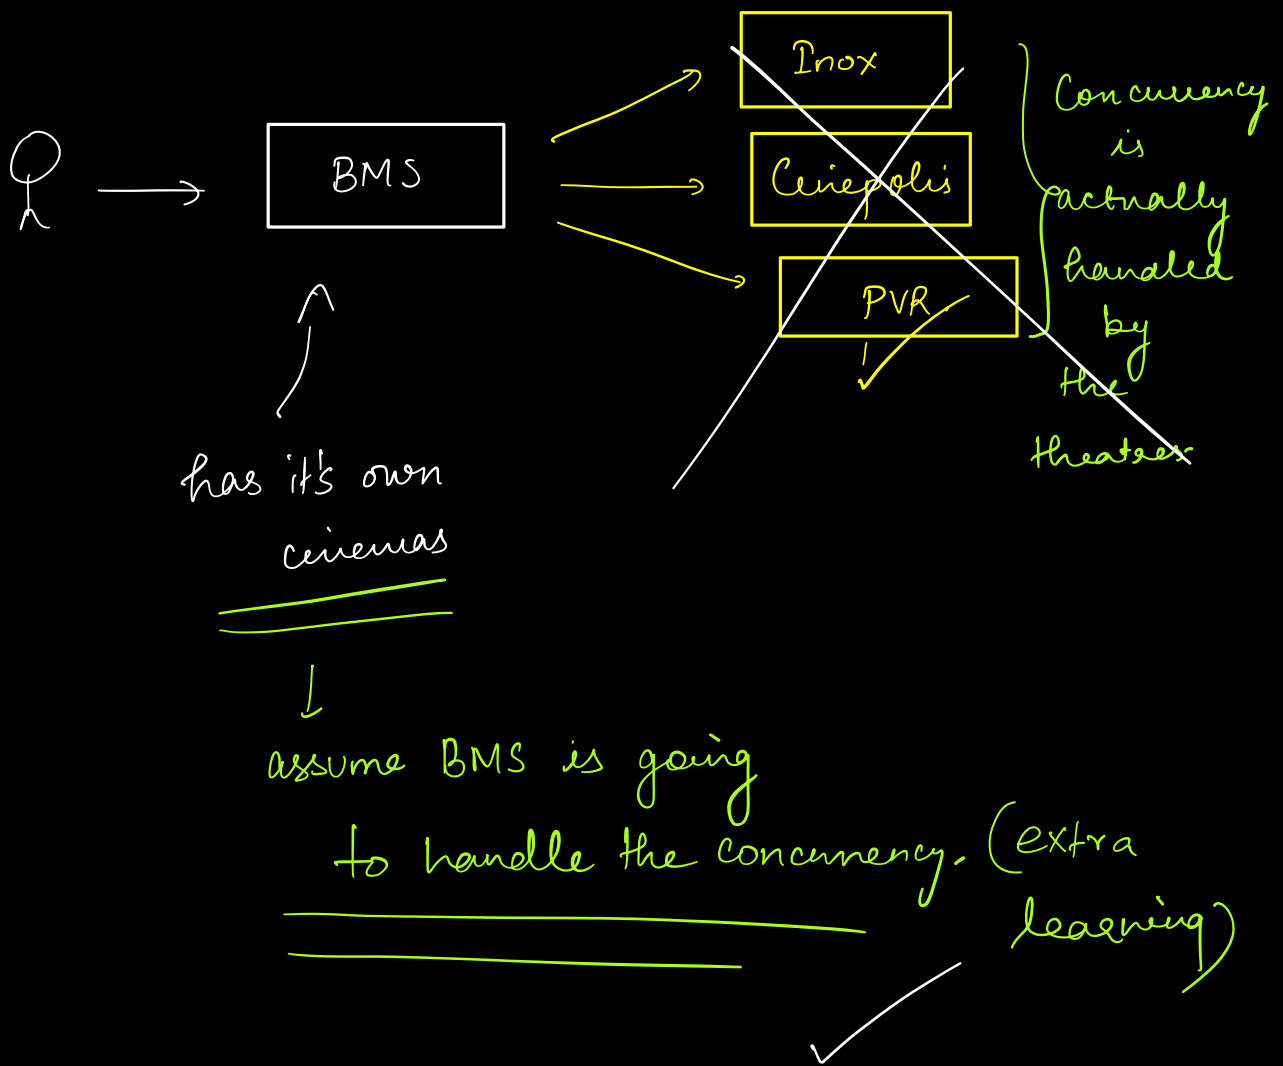 Inox
BMS
Cinepolis
PVR
Concurrency
is
actually
handled
by
the
theatres
has it's own
cinemas
assume BMS is going
to handle the concurrency. (extra
learning)